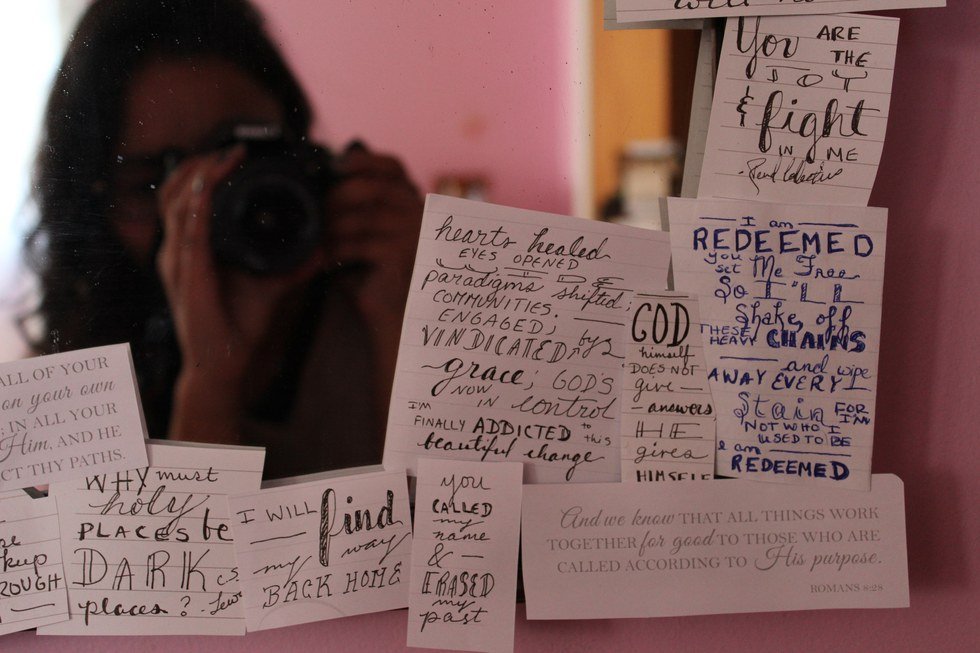 You ARE
THE
DOT
& fight
IN ME
I am
REDEEMED
you
set Me Free
So I'LL
Shake off
THESE
HEAVY CHAINS
and wipe
AWAY EVERY
Stain FOR
I'M
NOT WHO I
USED TO BE
I am
REDEEMED
hearts healed
EYES OPENED
paradigms shifted;
COMMUNITIES.
ENGAGED;
VINDICATED, by
grace; GODS
NOW
IN control
I'M
FINALLY ADDICTED to this
beautiful change
GOD
himself
DOES NOT
give
answers
HE
gives
HIMSELF
ALL OF YOUR
on your own
; IN ALL YOUR
Him, AND HE
CT THY PATHS.
WHY must
holy
PLACES be
DARK
places? - C.S. Lewis
ROUGH
I WILL find
my way
BACK HOME
you
CALLED
my
name
&
ERASED
my
past
And we know THAT ALL THINGS WORK
TOGETHER for good TO THOSE WHO ARE
CALLED ACCORDING TO His purpose.
ROMANS 8:28